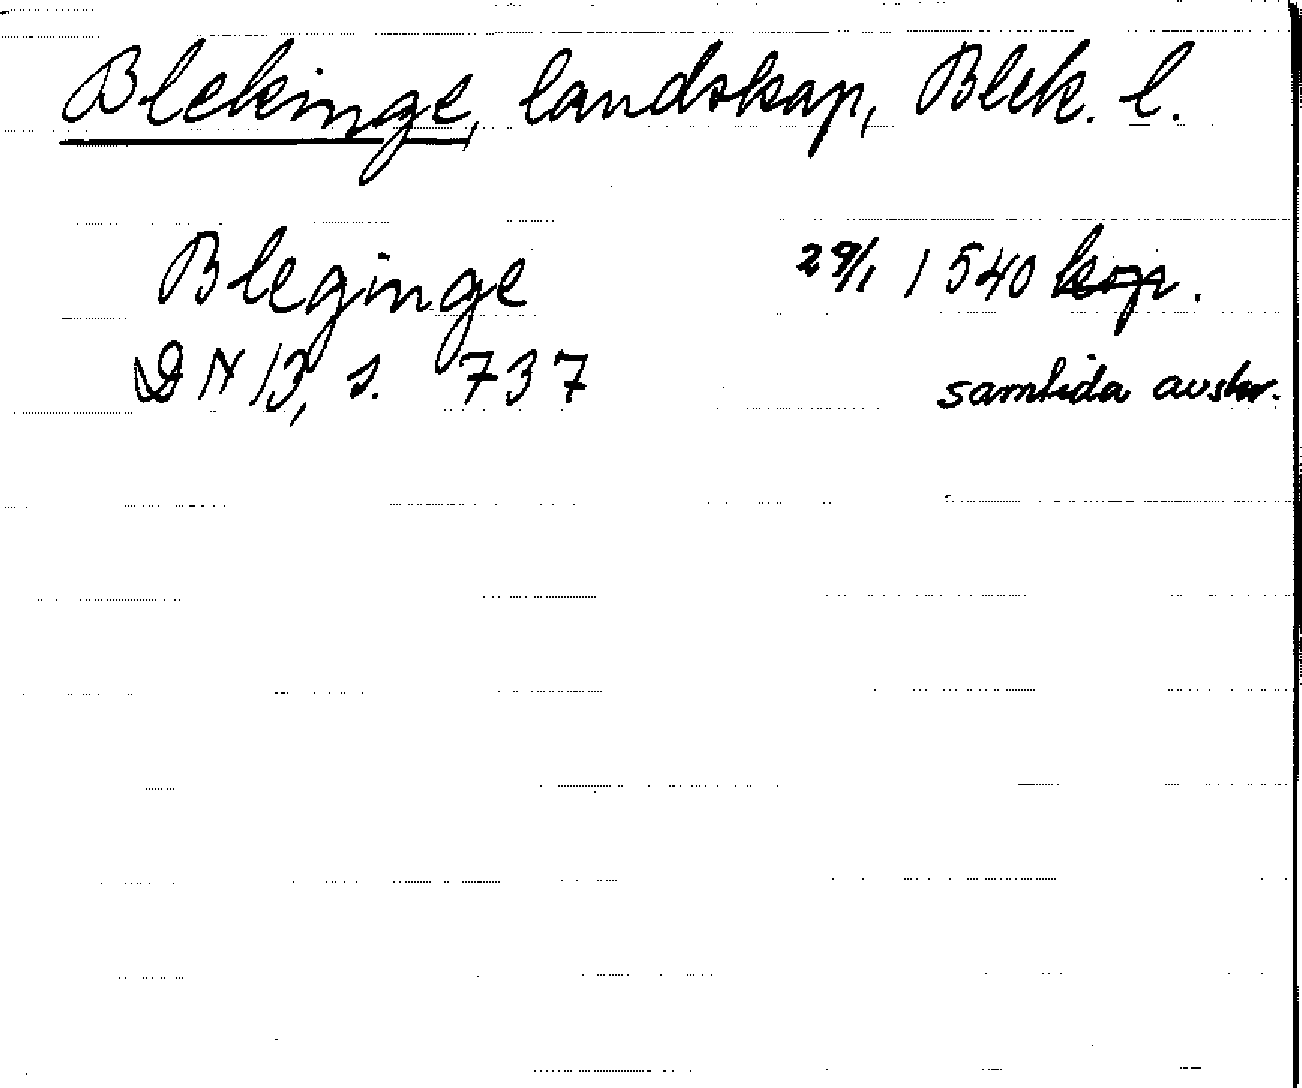 Blekinge, landskap, Blek. l.
Bleginge 29/1 1540 kop.
DN 13, s. 737 samtida avskr.